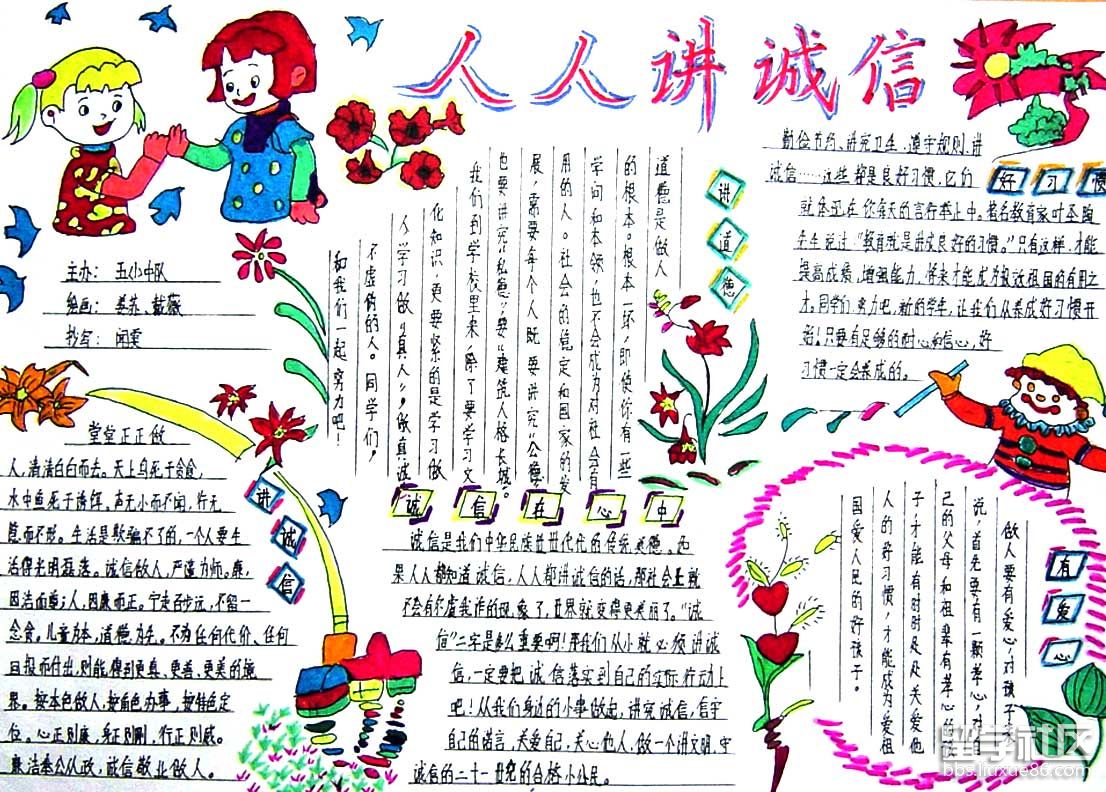 人人讲诚信
主办：五小中队
绘画：姜苏、戴薇
抄写：闻雯
讲道德
道德是做人
的根本。根本一坏，即使你有一些
学问和本领，也不会成为对社会有
用的人。社会的稳定和国家的发
展，需要每个人既要讲究“公德”
也要讲究“私德”，要“建筑人格长城”。
我们到学校里来，除了要学习文
化知识，更要紧的是学习做
人，学习做“真人”，做真诚
不虚伪的人。同学们，
和我们一起努力吧！
好习惯
勤俭节约、讲究卫生、遵守规则、讲
诚信……这些都是良好习惯，它们
就体现在你每天的言行举止中。著名教育家叶圣陶
先生说过“教育就是讲皮良好的习惯。”只有这样，才能
提高成绩，增强能力，将来才能成为报效祖国的有用之
才。同学们努力吧，新的学年，让我们从养成好习惯开
始！只要有足够的耐心和信心，好
习惯一定会养成的。
讲诚信
堂堂正正做
人，清清白白而去。天上鸟死于贪食，
水中鱼死于诱饵。声无小而不闻，行无
隐而不形。生活是欺骗不了的，一个人要生
活得光明磊落。诚信做人，严谨为师。廉，
因洁而，人，因廉而正。宁走百步远，不留一
念贪。儿童为本，道德为先。不为任何代价、任何
回报而付出，则能得到更真、更善、更美的
果。按本色做人，按角色办事，按特色定
位。心正则廉，身正则刚，行正则威。
廉洁奉公从政，诚信敬业做人。
诚信在心中
诚信是我们中华民族世世代代的传统美德。如
果人人都知道诚信，人人都讲诚信的话，那社会上就
不会有尔虞我诈的现象了，世界就变得更美丽了。“诚
信”二字是多么重要啊！那我们从小就必须讲诚
信，一定要把诚信落实到自己的实际行动上
吧！从我们身边的小事做起，讲究诚信，信守
自己的诺言，关爱自己，关心他人，做一个讲文明，守
诚信的二十一世纪的合格小公民。
有爱心
做人要有爱心，对孩子来
说，首先要有一颗孝心，对自
己的父母和祖辈有孝心的孩
子才能有时时处处关爱他
人的好习惯，才能成为爱祖
国爱人民的好孩子。
留学社区
bbs.liuxue86.com